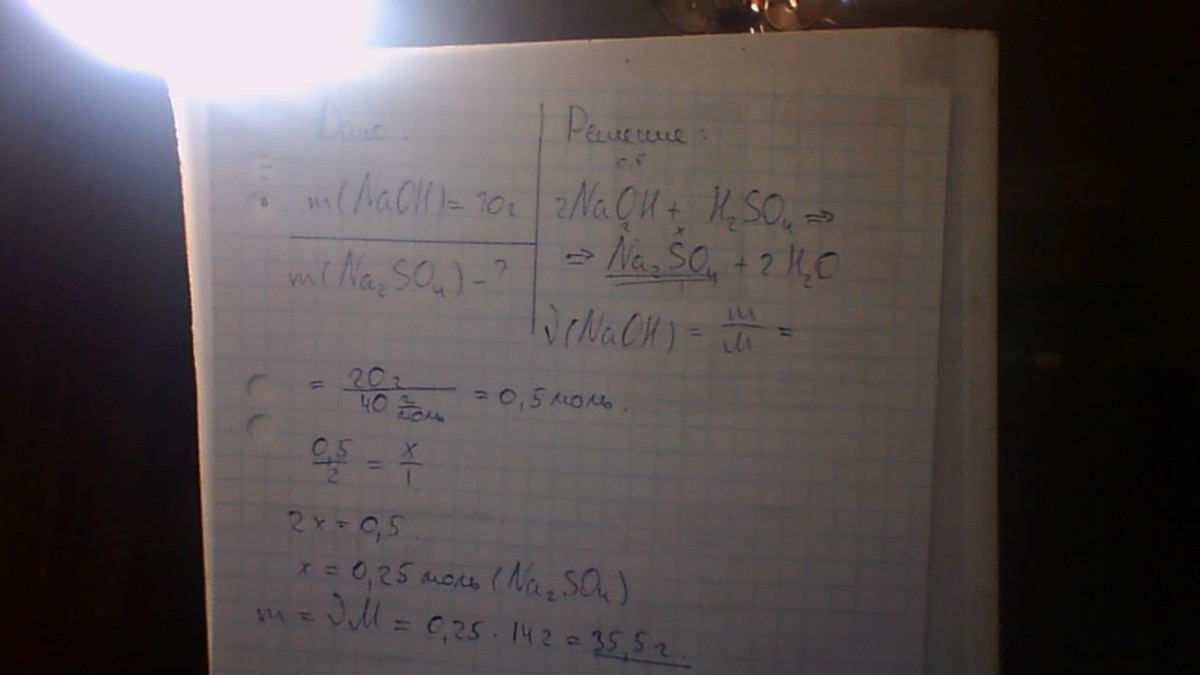 Дано:
m(NaOH)= 20г
m(Na₂SO₄) - ?
Решение:
0,5
2NaOH + H₂SO₄ ⇒
2 x
⇒ Na₂SO₄ + 2H₂O
1
ν(NaOH) = m/M =
= 20г / 40 г/моль = 0,5 моль.
0,5/2 = x/1
2x = 0,5.
x = 0,25 моль (Na₂SO₄)
m = νM = 0,25 · 142 = 35,5 г.